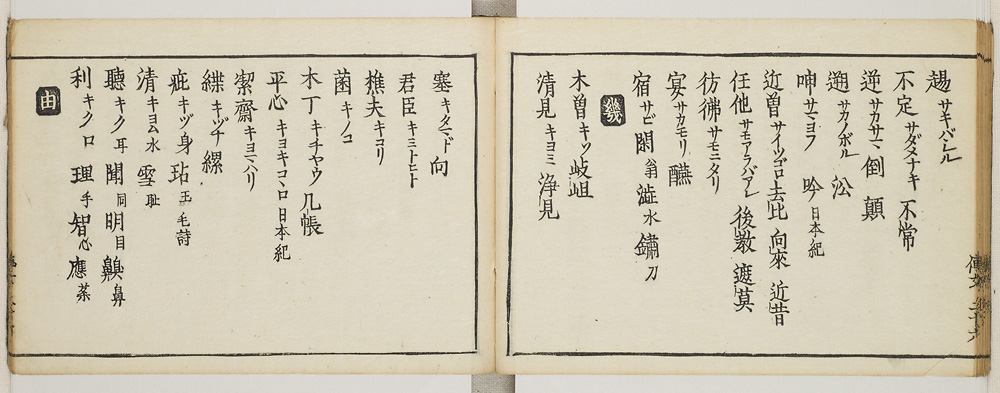 趨 サキバシル
不定 サダメナキ 不常
逆 サカサマ 倒 顛
遡 サカノボル 㳂
呻 サマヨフ 吟 日本紀
近曽 サイツゴロ 去比 向來 近昔
任他 サモアラバアレ 後教 遮莫
彷彿 サモニタリ
宴 サカモリ 醼
宿 サビ 閑 翁 澁 水 鏽 刀
幾
木曽 キソ 岐岨
清見 キヨミ 浄見
塞 キタマド 向
君臣 キミトヒト
樵夫 キコリ
菌 キノコ
木丁 キチヤウ 几帳
平心 キヨキコヽロ 日本紀
潔齋 キヨマハリ
緤 キヅナ 縲
疵 キヅ 身 玷 玉 毛詩
清 キヨム 水 雪 耻
聽 キク 耳 聞 同 明 目 齅 鼻
利 キクロ 理 手 智 心 應 茶
由